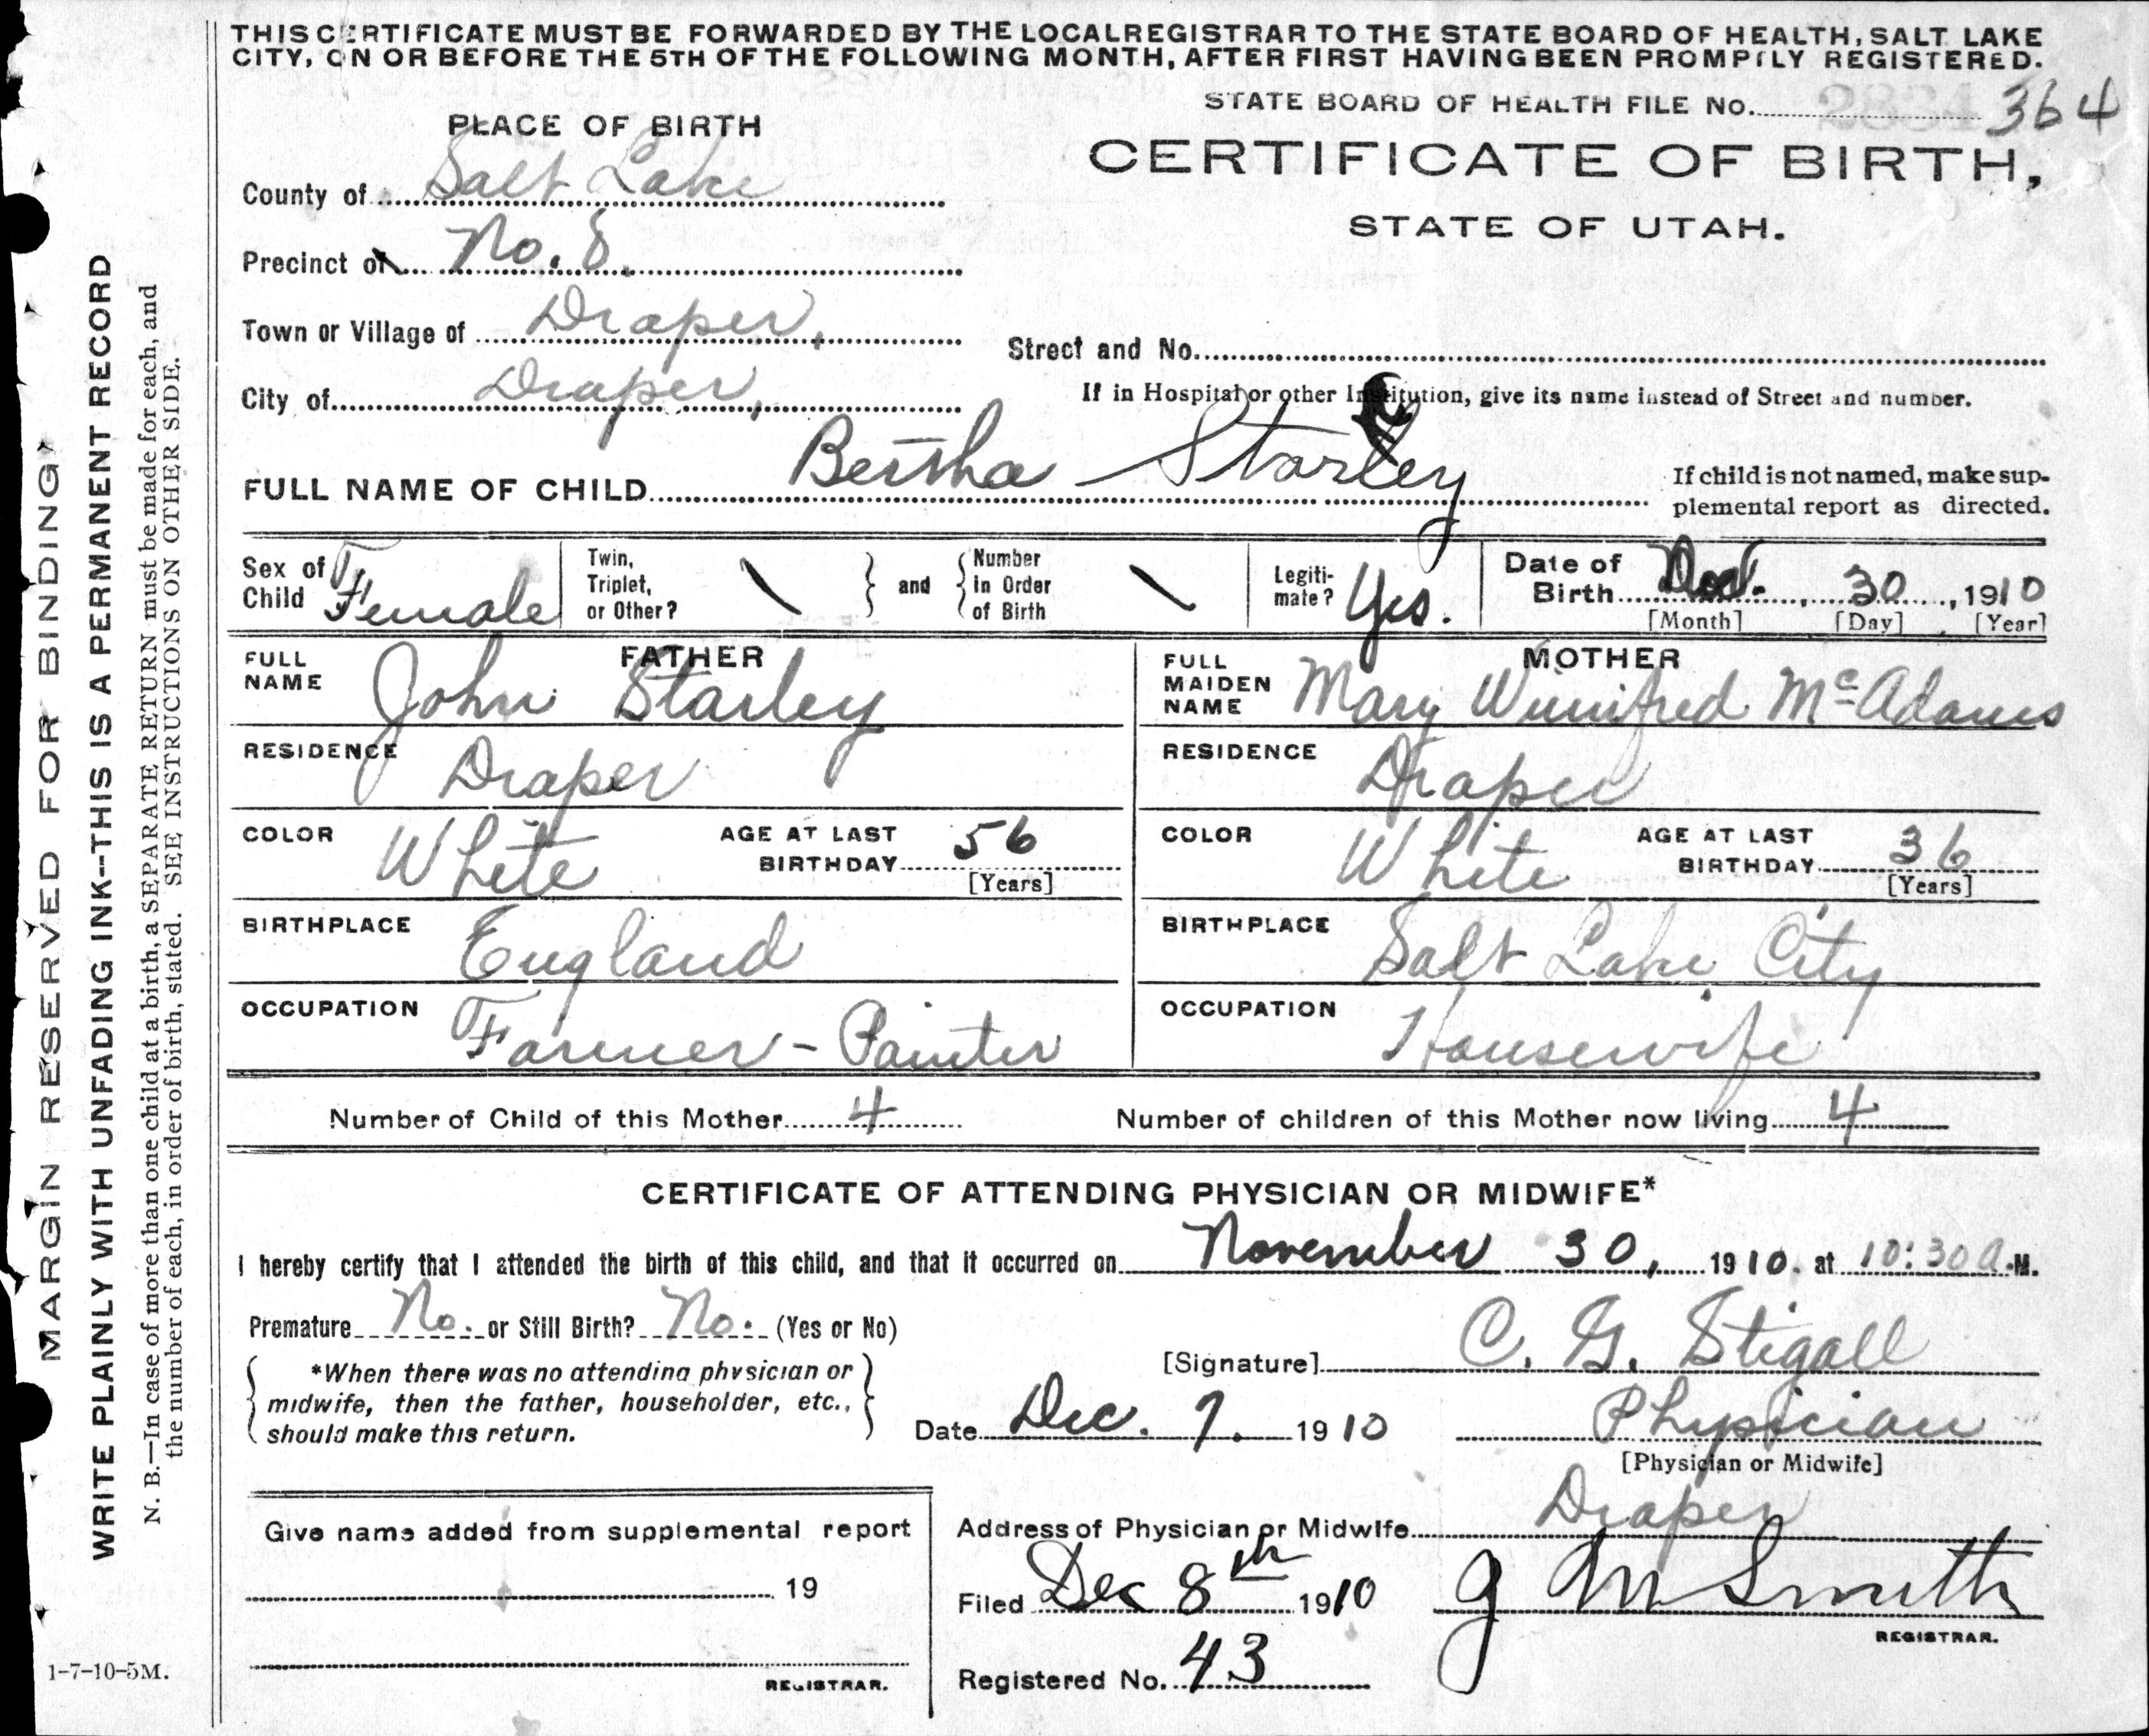 THIS CERTIFICATE MUST BE FORWARDED BY THE LOCAL REGISTRAR TO THE STATE BOARD OF HEALTH, SALT LAKE
CITY, ON OR BEFORE THE 5TH OF THE FOLLOWING MONTH, AFTER FIRST HAVING BEEN PROMPTLY REGISTERED.
STATE BOARD OF HEALTH FILE NO. 364
PLACE OF BIRTH
CERTIFICATE OF BIRTH,
STATE OF UTAH.
County of Salt Lake
Precinct of No. 8.
Town or Village of Draper,
Street and No.
City of Draper,
If in Hospital or other Institution, give its name instead of Street and number.
FULL NAME OF CHILD Bertha Starley
If child is not named, make sup-
plemental report as directed.
Sex of Child Female
Twin, Triplet, or Other? \ and Number in Order of Birth \
Legiti-mate? Yes.
Date of Birth 30, 1910
[Month] [Day] [Year]
FATHER
FULL NAME John Starley
RESIDENCE Draper
COLOR White AGE AT LAST BIRTHDAY 56 [Years]
BIRTHPLACE England
OCCUPATION Farmer - Painter
MOTHER
FULL MAIDEN NAME Mary Winnifred McAdams
RESIDENCE Draper
COLOR White AGE AT LAST BIRTHDAY 36 [Years]
BIRTHPLACE Salt Lake City
OCCUPATION Housewife
Number of Child of this Mother 4 Number of children of this Mother now living 4
CERTIFICATE OF ATTENDING PHYSICIAN OR MIDWIFE*
I hereby certify that I attended the birth of this child, and that it occurred on November 30, 1910. at 10:30 A.M.
Premature No. or Still Birth? No. (Yes or No)
*When there was no attending physician or
midwife, then the father, householder, etc.,
should make this return.
[Signature] C. G. Stigall
Date Dec. 7. 1910 Physician
[Physician or Midwife]
Address of Physician or Midwife Draper
Give name added from supplemental report
19
REGISTRAR.
Filed Dec 8th 1910 J M Smith
REGISTRAR.
Registered No. 43
MARGIN RESERVED FOR BINDING
WRITE PLAINLY WITH UNFADING INK--THIS IS A PERMANENT RECORD
N. B.—In case of more than one child at a birth, a SEPARATE RETURN must be made for each, and
the number of each, in order of birth, stated. SEE INSTRUCTIONS ON OTHER SIDE.
1-7-10-5M.